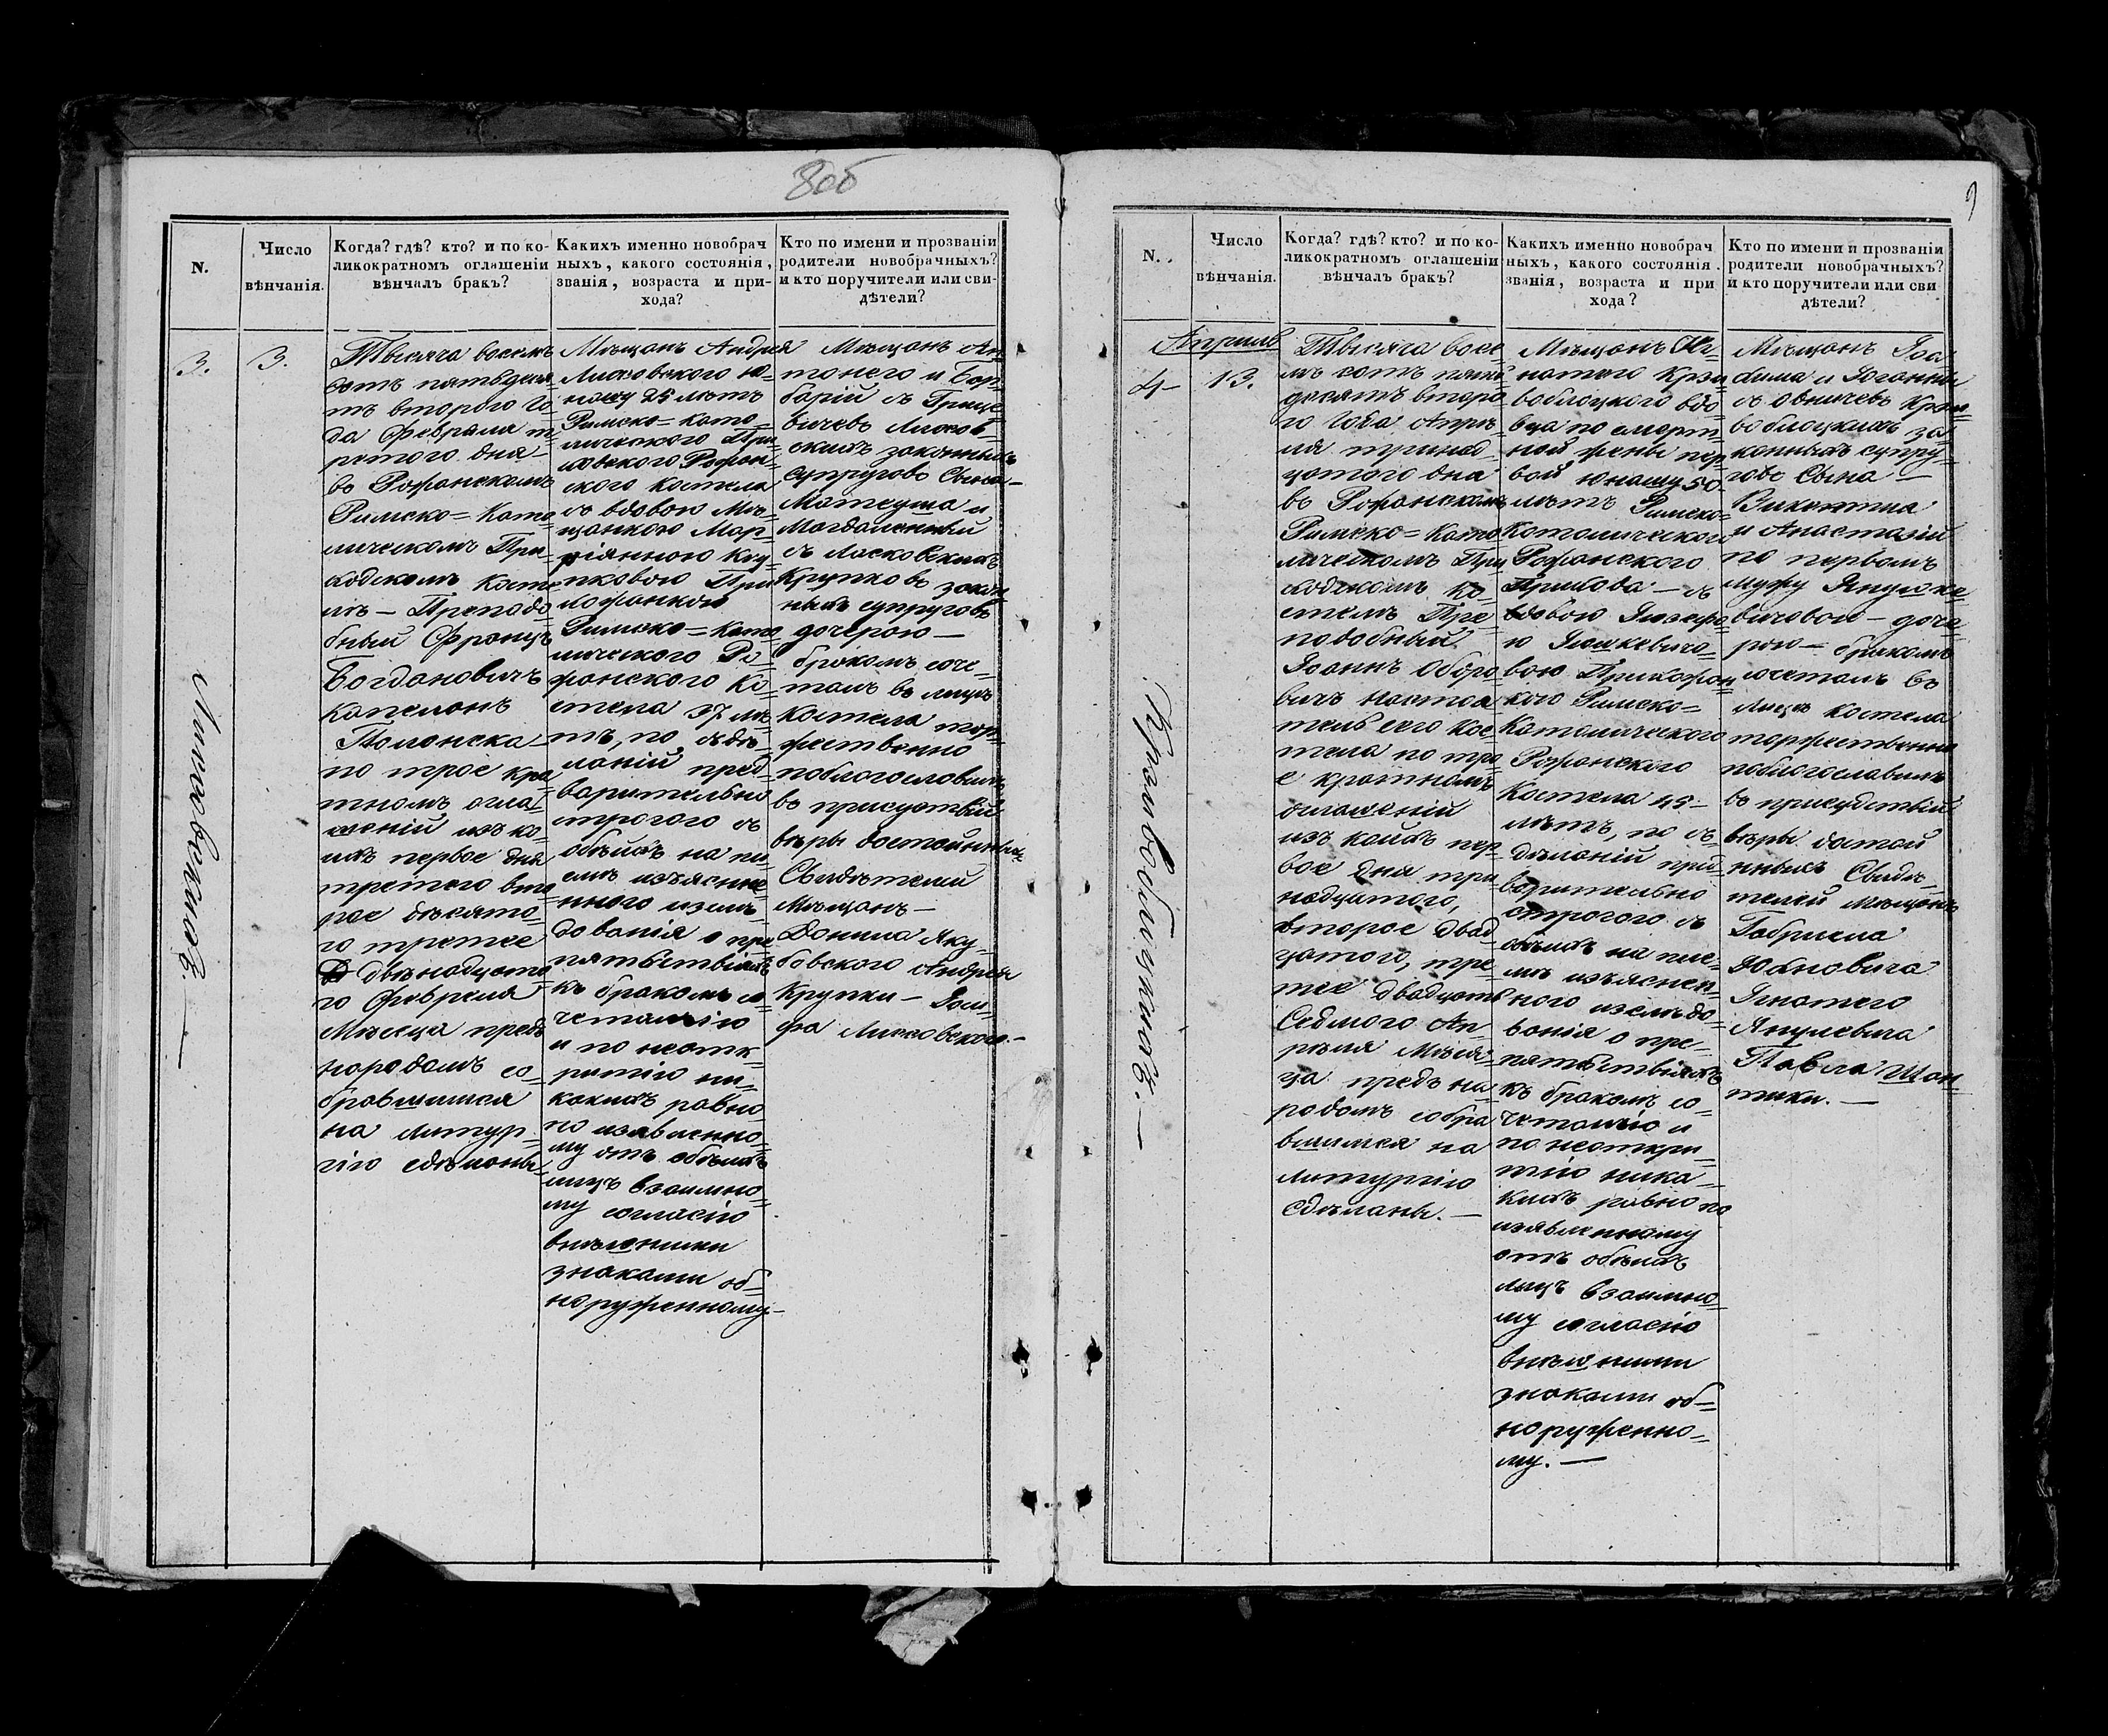 8об
N.
Число
вѣнчанія.
Когда? гдѣ? кто? и по ко-
ликократномъ оглашеніи
вѣнчалъ бракъ?
Какихъ именно новобрач
ныхъ, какого состоянія,
званія, возраста и при-
хода?
Кто по имени и прозваніи
родители новобрачныхъ?
и кто поручители или сви-
дѣтели?
3.
3.
Лисковскихъ. —
Тысяча восемь
сотъ пятьдеся-
тъ второго Го-
да Февраля т-
ретого дня
въ Рожанскомъ
Римско=Като
лическомъ При-
ходскомъ Косте
лѣ — Преподо
бный Францъ
Богдановичъ
капеланъ
Полонска
по трое кра
тномъ огла-
шеній изъ ко-
ихъ первое дня
третего вто
рое десято-
го третее
двенадцато
го Февраля
Мѣсяца предъ
народомъ со-
бравшимся
на литур-
гію сдѣланы
Мѣщанъ Андрея
Лисковского ю-
ношу 25 лѣтъ
Римско=Като
лического При
ходского Рожан-
ского костела
съ вдовою Мѣ-
щанкою Мар-
ріянною Кру-
пковою При
хожанкою
Римско=Като
лического Ро-
жанского Ко-
стела 37 лѣ-
тъ, по сдѣ-
ланій пред-
варительно
строгого съ
обѣихъ на пи-
смѣ изъясне-
нного изслѣ-
дованія о пре
пятствіяхъ
къ бракомъ со
четанію
и по неотк-
рытію ни-
какихъ равно
по изявленно-
му отъ обѣихъ
лицъ взаимно-
му согласію
внѣшними
знаками об-
наруженному-
Мѣщанъ Ан-
тонего и Бар-
барій съ Грице-
вичевъ Лисков-
скихъ законныхъ
супруговъ Сына —
Матеуша и
Магдаленный
съ Ласковскихъ
Крупковъ закон
ныхъ супруговъ
дочерою —
бракомъ соче-
талъ въ лицѣ
костела тор-
жественно
поблогословилъ
въ присутствій
вѣры достойныхъ
Свидѣтелей
Мѣщанъ —
Данила Яку-
бовского Андрея
Крупки — Іози-
фа Лисковского. —
9
N.
Число
вѣнчанія.
Когда? гдѣ? кто? и по ко-
ликократномъ оглашеніи
вѣнчалъ бракъ?
Какихъ именно новобрач
ныхъ, какого состоянія.
званія, возраста и при
хода?
Кто по имени и прозваніи
родители новобрачныхъ?
и кто поручители или сви
дѣтели?
Апрѣль
4-
13.
Тысяча восе
мъ сотъ пять
десятъ второ
го Года Апрѣ-
ля тринад-
цатого дня
въ Рожанскомъ
Римско=Като
лическомъ При
ходскомъ Ко-
стелѣ Пре-
подобный
Іоаннъ Оборо
вичъ настоя
тель сего Кос-
тела по тро
е кратномъ
оглашеній
изъ коихъ пер-
вое дня три-
надцатого,
второе двад-
цатого, тре-
тее двадцать
Седмого Ап-
рѣля Мѣся-
ца предъ на-
родомъ собра
вшимся на
литургію
сдѣланы. —
Мѣщанъ Иг-
натого Крзи
воблоцкого вдо
вца по смерт-
ной жены пер
вой юношу 50-
лѣтъ Римско=
Католического
Рожанского
Прихода — съ
вдовою Іозефо
ю Юшкевичо-
вою Прихожан
кою Римско=
Католического
Рожанского
Костела 45-
лѣтъ, по съ-
дѣланій пред-
варительно
строгого съ
обѣихъ на пис-
мѣ изъяснен-
ного изслѣдо-
ванія о пре-
пятствіяхъ
къ бракомъ со-
четанію и
по неоткры-
тію ника-
кихъ равно по
изявленному
отъ обѣихъ
лицъ взаимно-
му согласію
внѣшними
знаками об-
наруженно-
му. —
Мѣщанъ Іоа
хима и Іоганны
Кржи
воблоцкихъ за
конныхъ супру-
говъ Сына —
Викентиа
и Анастазій
по первомъ
мужу Янушке-
вичовой — доче
рою — бракомъ
сочеталъ въ
Лицѣ костела
торжественно
поблогославилъ
въ присудствій
вѣры достой
нныхъ Свидѣ-
телей Мѣщанъ
Габриела
Ігнатего
Янцлевича
Павла Шан-
тыки. —
Кржывоблоцкихъ. —